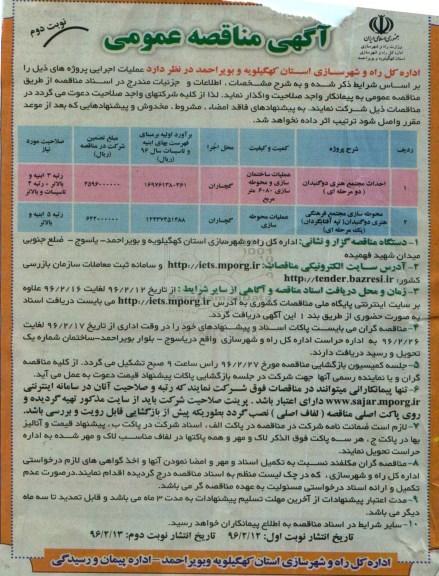 جمهوری اسلامی ایران
وزارت راه و شهرسازی
اداره کل راه و شهرسازی
استان کهگیلویه و بویراحمد
نوبت دوم
آگهی مناقصه عمومی
اداره کل راه و شهرسازی استان کهگیلویه و بویراحمد در نظر دارد عملیات اجرایی پروژه های ذیل را
بر اساس شرایط ذکر شده و به شرح مشخصات ، اطلاعات و جزئیات مندرج در اسناد مناقصه از طریق
مناقصه عمومی به پیمانکار واجد صلاحیت واگذار نماید. لذا از کلیه شرکتهای واجد صلاحیت دعوت می گردد در
مناقصات ذیل شرکت نمایند. به پیشنهادهای فاقد امضاء ، مشروط ، مخدوش و پیشنهادهایی که بعد از موعد
مقرر واصل شود ترتیب اثر داده نخواهد شد.
ردیف | شرح پروژه | کمیت و کیفیت | محل اجرا | برآورد اولیه برمبنای فهرست بهای ابنیه و تاسیسات سال ۹۶ (ریال) | مبلغ تضمین شرکت در مناقصه (ریال) | صلاحیت مورد نیاز
۱ | احداث مجتمع هنری دوگنبدان ( دو مرحله ای ) | عملیات ساختمان سازی و محوطه سازی ۶۰۸۰ متر مربع | گچساران | ۱۶۹۷۶۱۳۸۰۲۶۱ | ۲۵۹۶۰۰۰۰۰۰ | رتبه ۳ ابنیه و بالاتر - رتبه ۴ تاسیسات و بالاتر
۲ | محوطه سازی مجتمع فرهنگی هنری دوگنبدان (تپه آفتابگردان) (یک مرحله ای) | عملیات محوطه سازی | گچساران | ۱۲۲۳۷۳۵۱۲۸۸ | ۶۲۲۰۰۰۰۰۰ | رتبه ۵ ابنیه و بالاتر
۱- دستگاه مناقصه گزار و نشانی: اداره کل راه و شهرسازی استان کهگیلویه و بویراحمد- یاسوج – ضلع جنوبی
میدان شهید فهمیده
۲- آدرس سایت الکترونیکی مناقصات: http://iets.mporg.ir و سامانه ثبت معاملات سازمان بازرسی
کشور: http://tender.bazresi.ir
۳- زمان و محل دریافت اسناد مناقصه و آگاهی از سایر شرایط : از تاریخ ۹۶/۲/۱۲ لغایت ۹۶/۲/۱۶ علاوه
بر سایت اینترنتی پایگاه ملی مناقصات کشوری به آدرس http://iets.mporg.ir می بایست دریافت اسناد
به صورت حضوری از طریق بند ۱ این آگهی دریافت گردد.
۴- مناقصه گران می بایست پاکات اسناد و پیشنهادهای خود را در وقت اداری از تاریخ ۹۶/۲/۱۷ لغایت
۹۶/۲/۲۶ به اداره حراست اداره کل راه و شهرسازی واقع دریاسوج – بلوار بویراحمد-ساختمان شماره یک
تحویل و رسید دریافت دارند.
۵- جلسه کمیسیون بازگشایی مناقصه مورخ ۹۶/۲/۲۷ راس ساعت ۹ صبح تشکیل می گردد. از کلیه مناقصه
گران و یا نماینده رسمی آنها جهت شرکت در جلسه بازگشایی پاکات پیشنهاد قیمت دعوت به عمل می آید.
۶- تنها پیمانکارانی میتوانند در مناقصات فوق شرکت نمایند که رتبه و صلاحیت آنان در سامانه اینترنتی
www.sajar.mporg.ir دارای اعتبار باشد . پرینت صلاحیت شرکت باید از سایت مذکور تهیه گردیده و
روی پاکت اصلی مناقصه ( لفاف اصلی ) نصب گردد بطوریکه پیش از بازگشایی قابل رویت و بررسی باشد.
۷- لازم است ضمانت نامه شرکت در مناقصه در پاکت الف ، اسناد شرکت در پاکت ب ، پیشنهاد قیمت و آنالیز
بها در پاکت ج ، هر سه پاکت فوق الذکر لاک و مهر و همه پاکتها در لفاف مناسب لاک و مهر شده به اداره
حراست تحویل نمایند.
۸- مناقصه گران مکلفند نسبت به تکمیل اسناد و مهر و امضا نمودن آنها و اخذ گواهی های لازم درخواستی
اداره کل راه و شهرسازی ، که در چک لیست منظم به اسناد مناقصه درج گردیده اقدام نمایند.درصورت عدم
تکمیل و ارائه اسناد درخواستی مسئولیت به عهده مناقصه گر می باشد.
۹- مدت اعتبار پیشنهادات از آخرین مهلت تسلیم پیشنهادات به مدت ۳ ماه می باشد و قابل تمدید تا سه ماه
دیگر می باشد.
۱۰- سایر شرایط در اسناد مناقصه به اطلاع پیمانکاران خواهد رسید.
تاریخ انتشار نوبت اول: ۹۶/۲/۱۲ تاریخ انتشار نوبت دوم: ۹۶/۲/۱۳
اداره کل راه و شهرسازی استان کهگیلویه وبویراحمد - اداره پیمان و رسیدگی